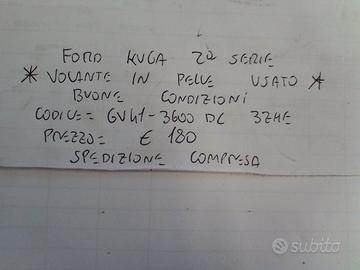 FORD KUGA 2ª SERIE
* VOLANTE IN PELLE USATO *
BUONE CONDIZIONI
CODICE = GV41-3600 DC 3ZHE
PREZZO = € 180
SPEDIZIONE COMPRESA
subito